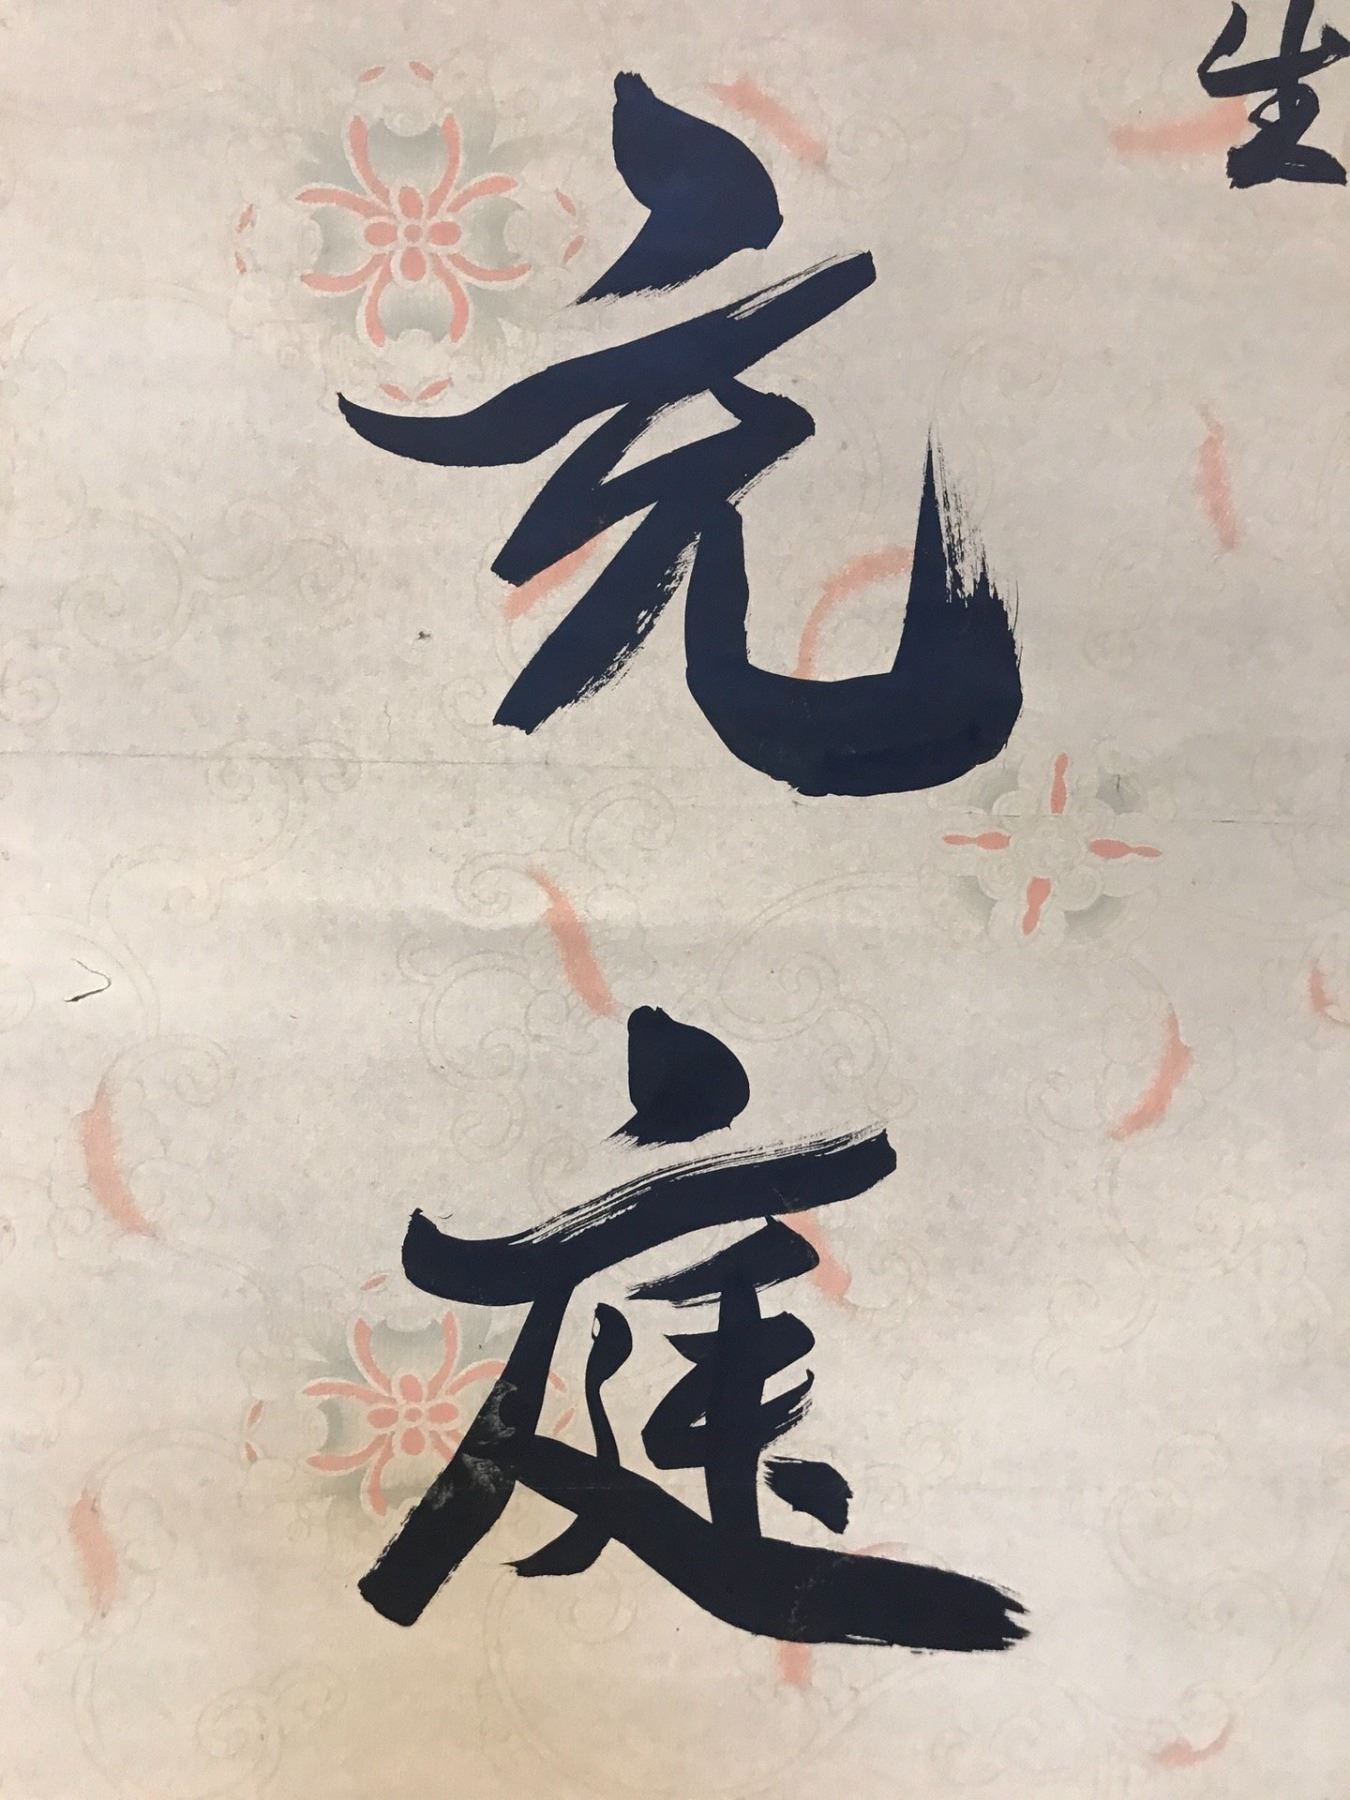 生
充庭